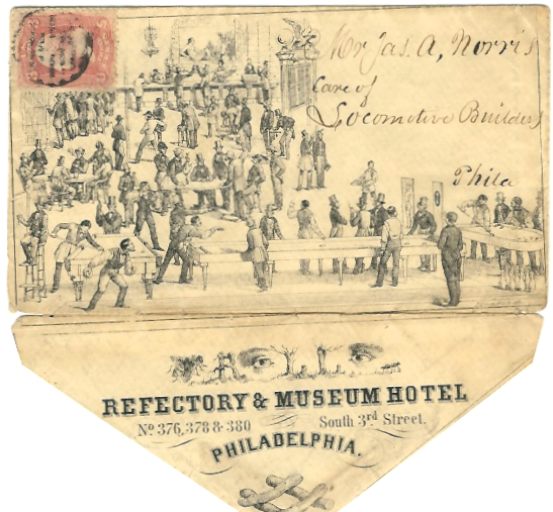 Mr Jas. A, Norris
Care of
Locomotive Builders
Phila
REFECTORY & MUSEUM HOTEL
No. 376, 378 & 380 South 3rd Street.
PHILADELPHIA.